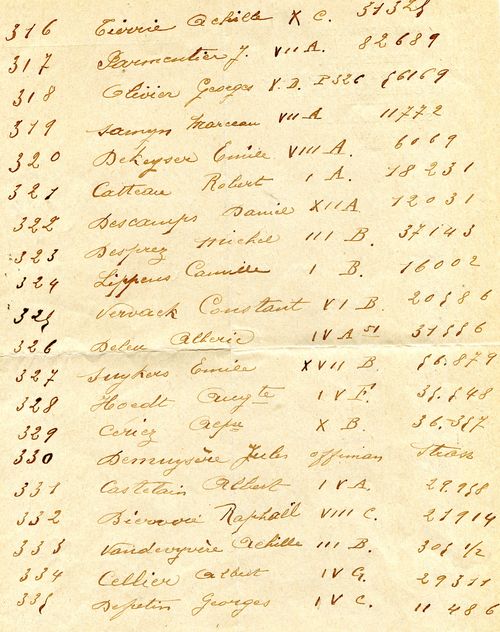 316 Tierrie Achille X C. 31325
317 Parmentier J. VII A. 82689
318 Olivier Georges V.D. P326 56169
319 Samyn Marceau VII A 11772
320 Dekeyser Emile VIII A. 6069
321 Catteau Robert I A. 18231
322 Descamps Daniel XII A 12031
323 Desprez Michel III B. 37143
324 Lippens Camille I B. 16002
325 Vervack Constant VI B. 20586
326 Deleu Alberic IV A 31556
327 Snykers Emile XVII B 56.879
328 Hoedt Aug te IV F. 35.548
329 Coriez X B. 36.357
330 Demuysère Jules
331 Castelain Albert IV A. 29.958
332 Raphaël VIII C. 21914
333 Vandevyvère Achille III B. 305 1/2
334 Cellier Albert IV G. 29311
335 Depetin Georges IV C. 11 486